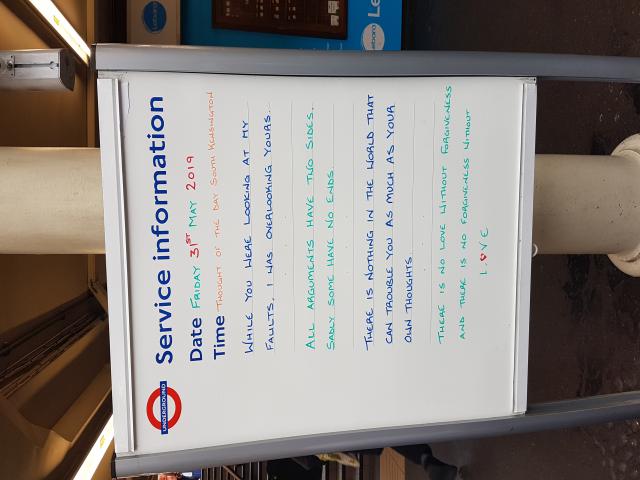 UNDERGROUND
Service information
Date FRIDAY 31ST MAY 2019
Time THOUGHT OF THE DAY SOUTH KENSINGTON
WHILE YOU WERE LOOKING AT MY
FAULTS, I WAS OVERLOOKING YOURS.
ALL ARGUMENTS HAVE TWO SIDES.
SADLY SOME HAVE NO ENDS.
THERE IS NOTHING IN THE WORLD THAT
CAN TROUBLE YOU AS MUCH AS YOUR
OWN THOUGHTS
THERE IS NO LOVE WITHOUT FORGIVENESS
AND THERE IS NO FORGIVENESS WITHOUT
L♥VE